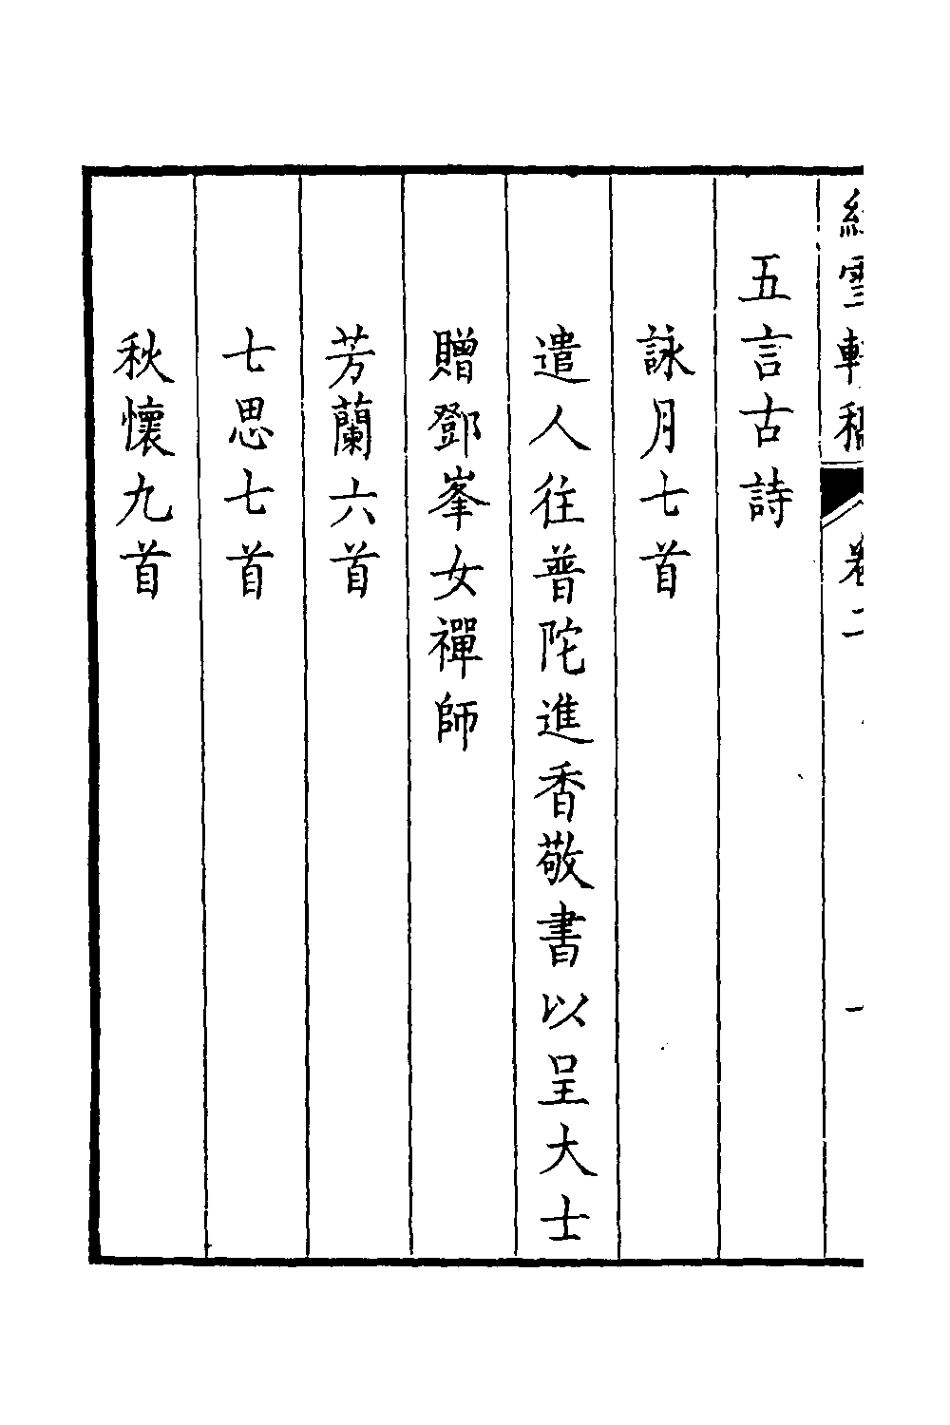 雪軒稿 卷二 一
五言古詩
詠月七首
遣人往普陀進香敬書以呈大士
贈鄧峯女禪師
芳蘭六首
七思七首
秋懷九首